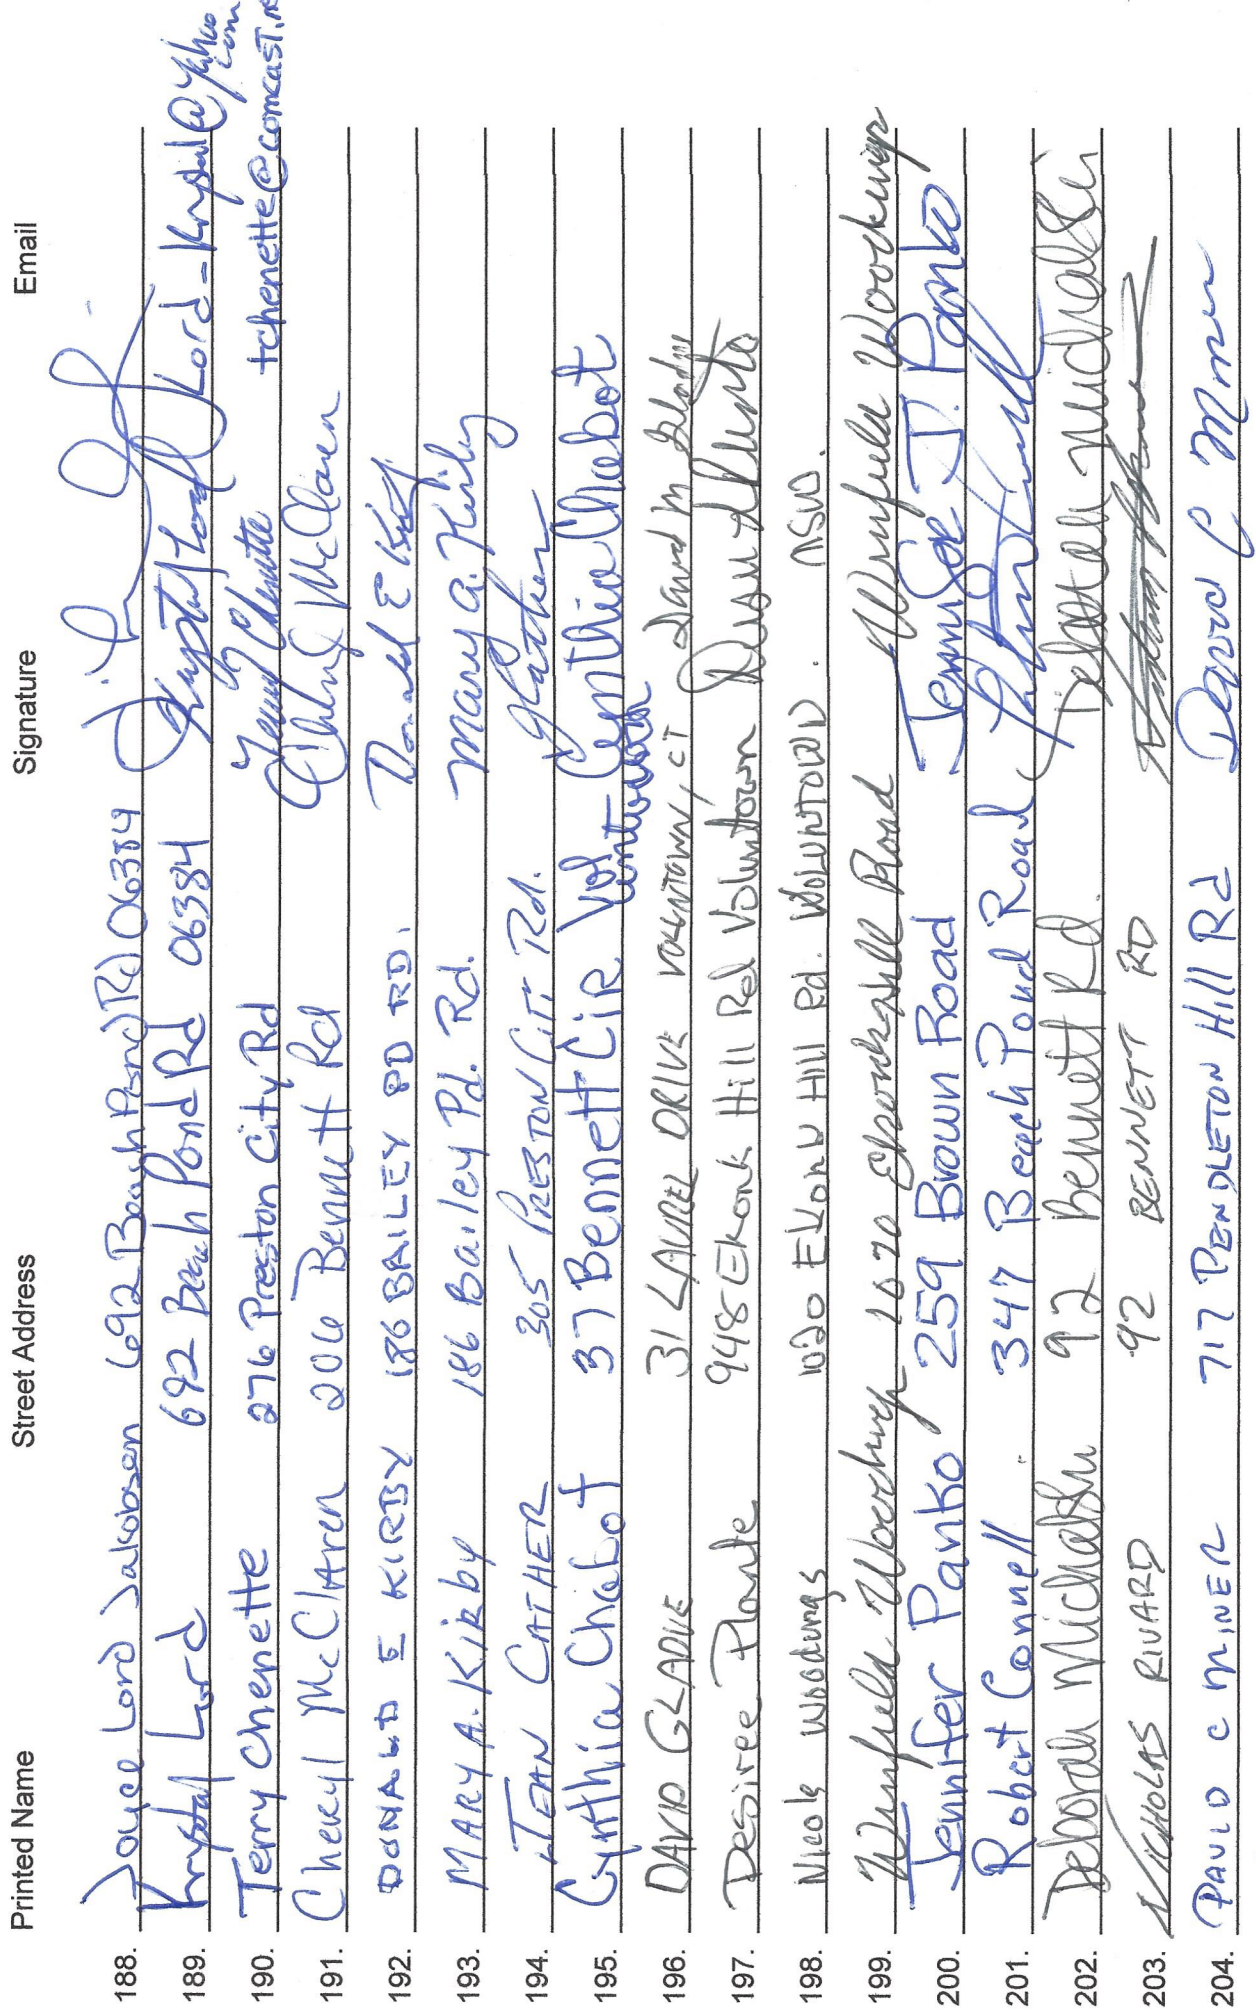 Printed Name Street Address Signature Email
188. Joyce Lord Jakobsen 692 Beach Pond Rd 06384
189. Krystal Lord 692 Beach Pond Rd 06384 Krystal Lord Lord-Krystal@Yahoo.com
190. Terry Chenette 276 Preston City Rd Terry Chenette tchenette@comcast.ne
191. Cheryl McClaren 206 Bennett Rd Cheryl McClaren
192. DONALD E KIRBY 186 BAILEY PD RD. Donald E Kirby
193. MARY A. KIRby 186 Bailey Pd. Rd. Mary A. Kirby
194. JEAN CATHER 305 PRESTON CITY Rd. J Cather
195. Cynthia Chabot 37 Bennett Cir. Voluntown Cynthia Chabot
196. DAVID GLADUE 31 LAUREL DRIVE VOLUNTOWN, CT David M Gladue
197. Desiree Plante 948 Ekonk Hill Rd Voluntown
198. Nicole 1020 Ekonk Hill Rd. VOLUNTOWN
199. Winfield Road Winfield
200. Jennifer Panko 259 Brown Road Jennifer J. Panko
201. Robert Connell 347 Beach Pond Road
202. Deborah Michalski 92 Bennett Rd. Deborah Michalski
203. NICHOLAS RIVARD 92 BENNETT RD
204. DAVID C MINER 717 PENDLETON Hill Rd David C Miner